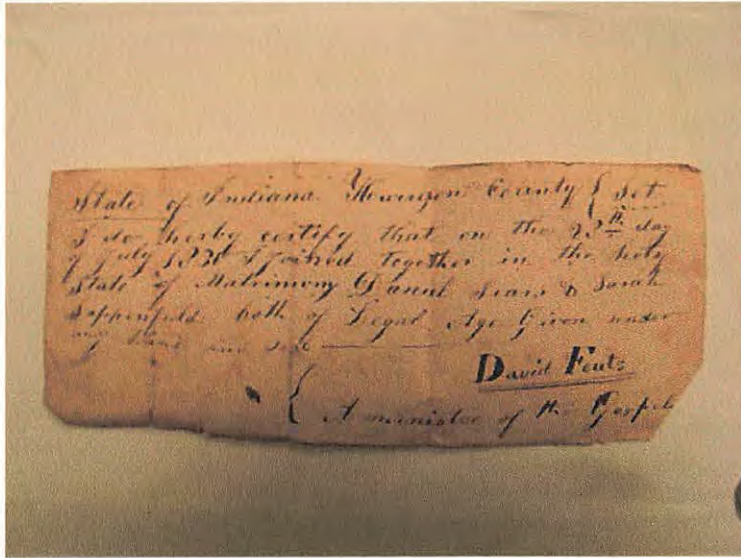 State of Indiana Harrison County { Set
I do herby certify that on the 23th day
of July I joined together in the holy
State of Matrimony Daniel Sears & Sarah
both of Legal Age Given under
my hand and seal
David Fouts
{ A minister of the Gospel